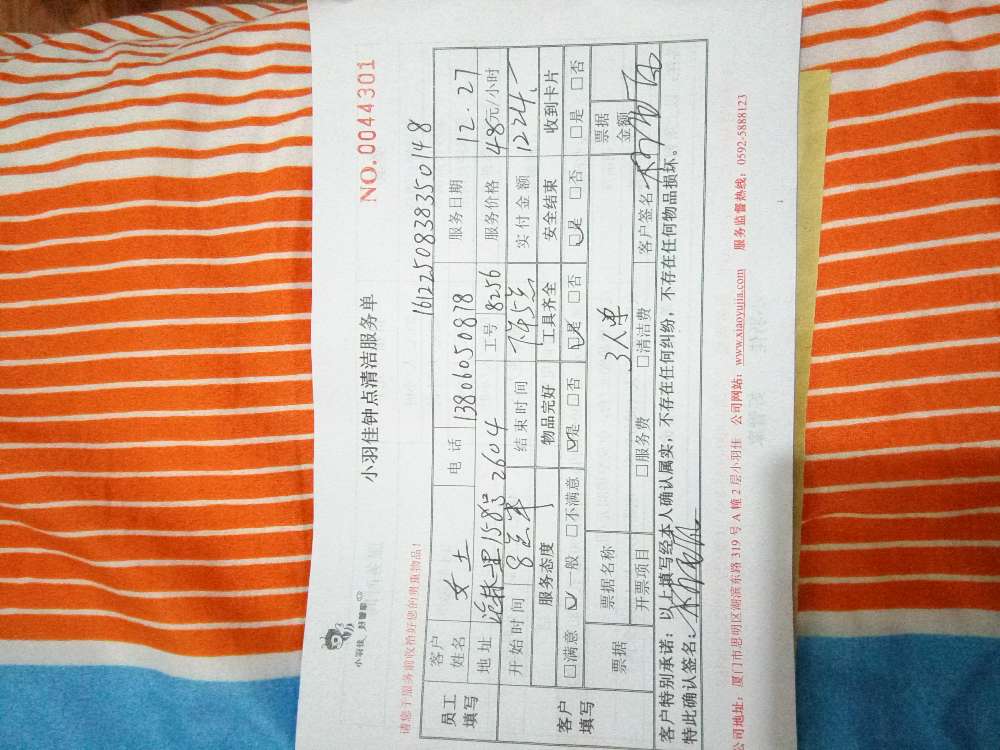 小羽佳，好管家
小羽佳钟点清洁服务单
NO.0044301
请您于服务前收拾好您的贵重物品！
1612250838350148
员工填写
客户姓名 女士 电话 13806050878 服务日期 12.27
地址 158号2604 工号 8256 服务价格 48元/小时
开始时间 8点半 结束时间 下午5点 实付金额 1224.
客户填写
服务态度 物品完好 工具齐全 安全结束 收到卡片
□满意 ☑一般 □不满意 ☑是 □否 ☑是 □否 ☑是 □否 □是 □否
票据 票据名称 3人单 票据金额
开票项目 □服务费 □清洁费 客户签名
客户特别承诺：以上填写经本人确认属实，不存在任何纠纷，不存在任何物品损坏。
特此确认签名：
公司地址：厦门市思明区湖滨东路319号A幢2层小羽佳 公司网站：www.xiaoyujia.com 服务监督热线：0592-5888123